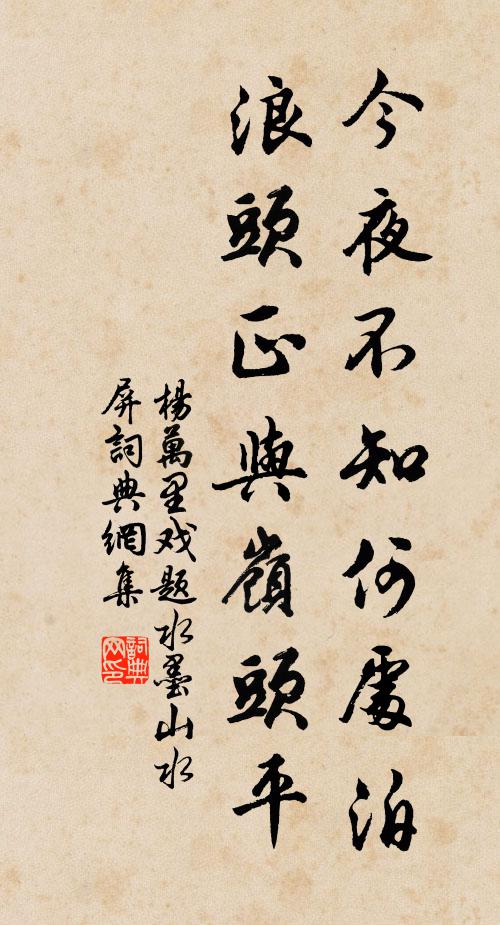 今夜不知何處泊
浪頭正與嶺頭平
楊萬里戏题水墨山水
屏詞典網集
詞典网印